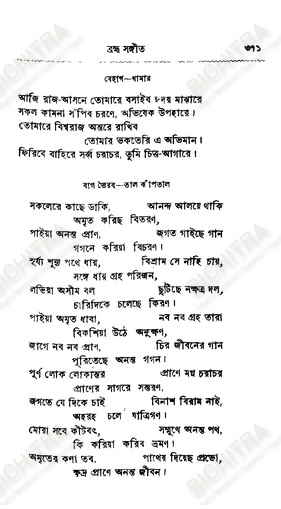 ব্রহ্ম সঙ্গীত ৩৭১
বেহাগ—ধামার
আজি রাজ-আসনে তোমারে বসাইব হৃদয় মাঝারে
সকল কামনা সঁপিব চরণে, অভিষেক উপহারে।
তোমারে বিশ্বরাজ অন্তরে রাখিব
তোমার ভকতেরি এ অভিমান।
ফিরিবে বাহিরে সর্ব্ব চরাচর, তুমি চিত্ত-আগারে।
রাগ ভৈরব—তাল ঝাঁপতাল
সকলেরে কাছে ডাকি, আনন্দ আলয়ে থাকি
অমৃত করিছ বিতরণ,
পাইয়া অনন্ত প্রাণ, জগত গাইছে গান
গগনে করিয়া বিচরণ।
সূর্য্য শূন্য পথে ধায়, বিশ্রাম সে নাহি চায়,
সঙ্গে ধায় গ্রহ পরিজন,
লভিয়া অসীম বল ছুটিছে নক্ষত্র দল,
চারিদিকে চলেছে কিরণ।
পাইয়া অমৃত ধারা, নব নব গ্রহ তারা
বিকশিয়া উঠে অনুক্ষণ,
জাগে নব নব প্রাণ, চির জীবনের গান
পূরিতেছে অনন্ত গগন।
পূর্ণ লোক লোকান্তর প্রাণে মগ্ন চরাচর
প্রাণের সাগরে সন্তরণ,
জগতে যে দিকে চাই বিনাশ বিরাম নাই,
অহরহ চলে যাত্রিগণ।
মোরা সবে কীটবৎ, সম্মুখে অনন্ত পথ,
কি করিয়া করিব ভ্রমণ।
অমৃতের কণা তব, পাথেয় দিয়েছ প্রভো,
ক্ষুদ্র প্রাণে অনন্ত জীবন।
BICHITRA